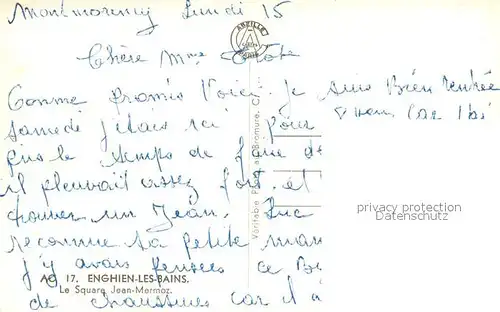 Montmorency Lundi 15
ABEILLE
Chère Mme
Comme promis Voici. Je suis Bien rentrée
samedi j'étais ici pour
pas le temps de faire
il pleuvait assez fort. et
trouver un Jean. Luc
reconnue sa petite
j'y avais pensées ce
de chaussures car il
Véritable Photo au Bromure,
AC 17. ENGHIEN-LES-BAINS.
Le Square Jean-Mermoz.
privacy protection
Datenschutz